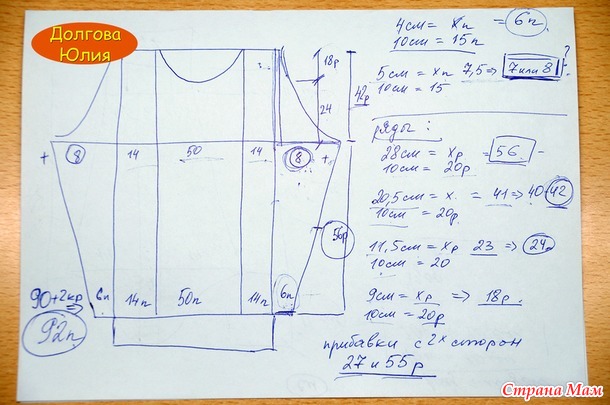 Долгова
Юлия
4см = xп = 6п
10см = 15п
5см = xп 7,5 => 7 или 8 ?
10см = 15
18р
24
42р
ряды:
28см = xр = 56
10см = 20р
20,5см = x = 41 => 40-42
10см = 20р
11,5см = xр 23 => 24
10см = 20
9см = xр => 18р
10см = 20р
прибавки с 2х сторон
27 и 55р
+ 8 14 50 14 8 +
56р
90+2кр => 6п 14п 50п 14п 6п
92п
Страна Мам